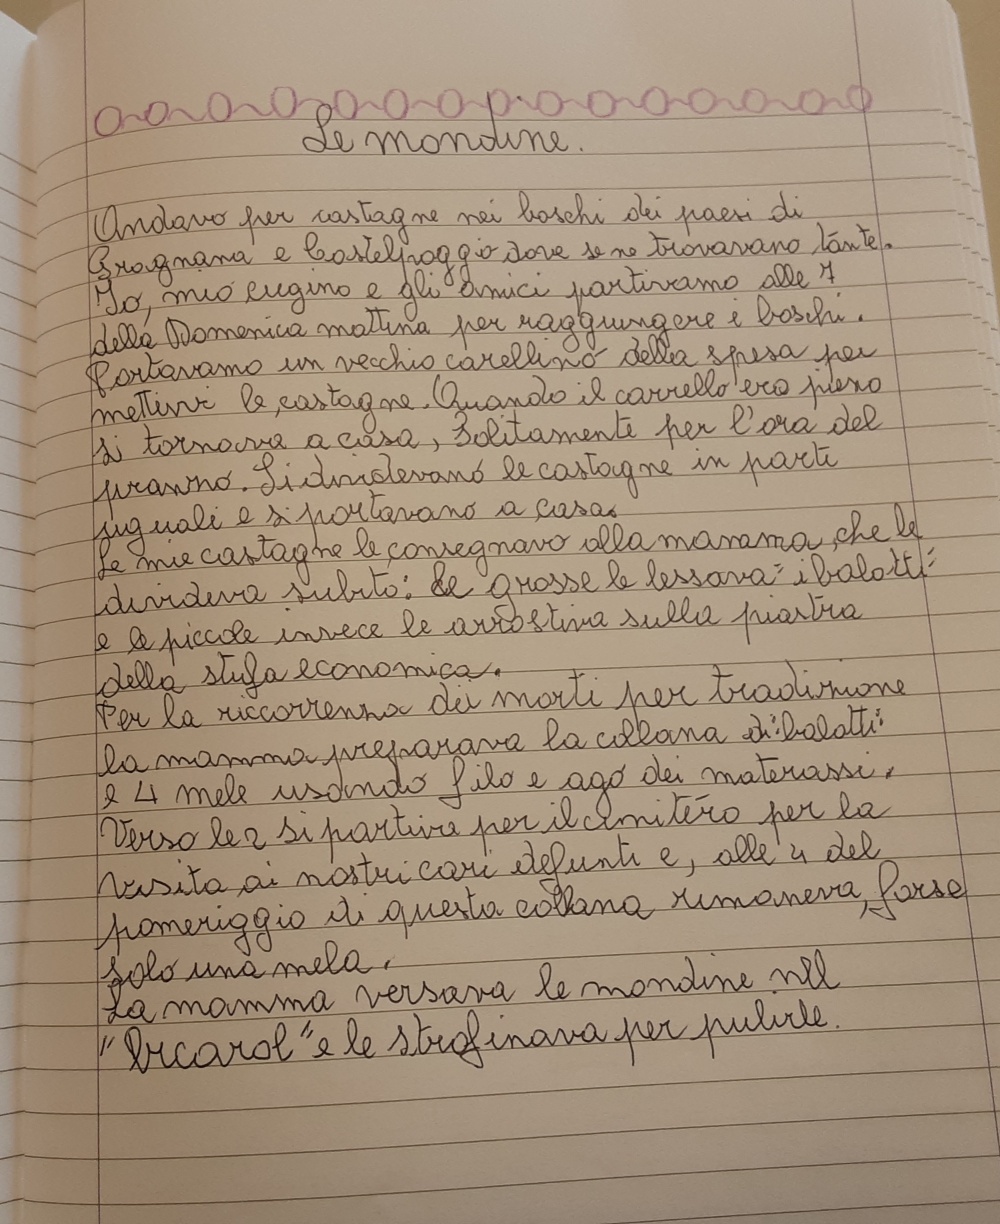 Le mondine.
Andavo per castagne nei boschi dei paesi di
Gragnana e Castelpoggio dove se ne trovavano tante.
Io, mio cugino e gli amici partivamo alle 7
della Domenica mattina per raggiungere i boschi.
Portavamo un vecchio carellino della spesa per
mettirvi le castagne. Quando il carrello era pieno
si tornava a casa, solitamente per l'ora del
pranno. Si dividevano le castagne in parti
uguali e si portavano a casa.
Le mie castagne le consegnavo alla mamma, che le
divideva subito: le grosse le lessava "i balotti"
e le piccole invece le arrostiva sulla piastra
della stufa economica.
Per la riccorrenza dei morti per tradizione
la mamma preparava la collana di "balotti"
e 4 mele usando filo e ago dei materassi.
Verso le 2 si partiva per il cimitero per la
visita ai nostri cari defunti e, alle 4 del
pomeriggio di questa collana rimaneva, forse
solo una mela.
La mamma versava le mondine nel
e le strofinava per pulirle.